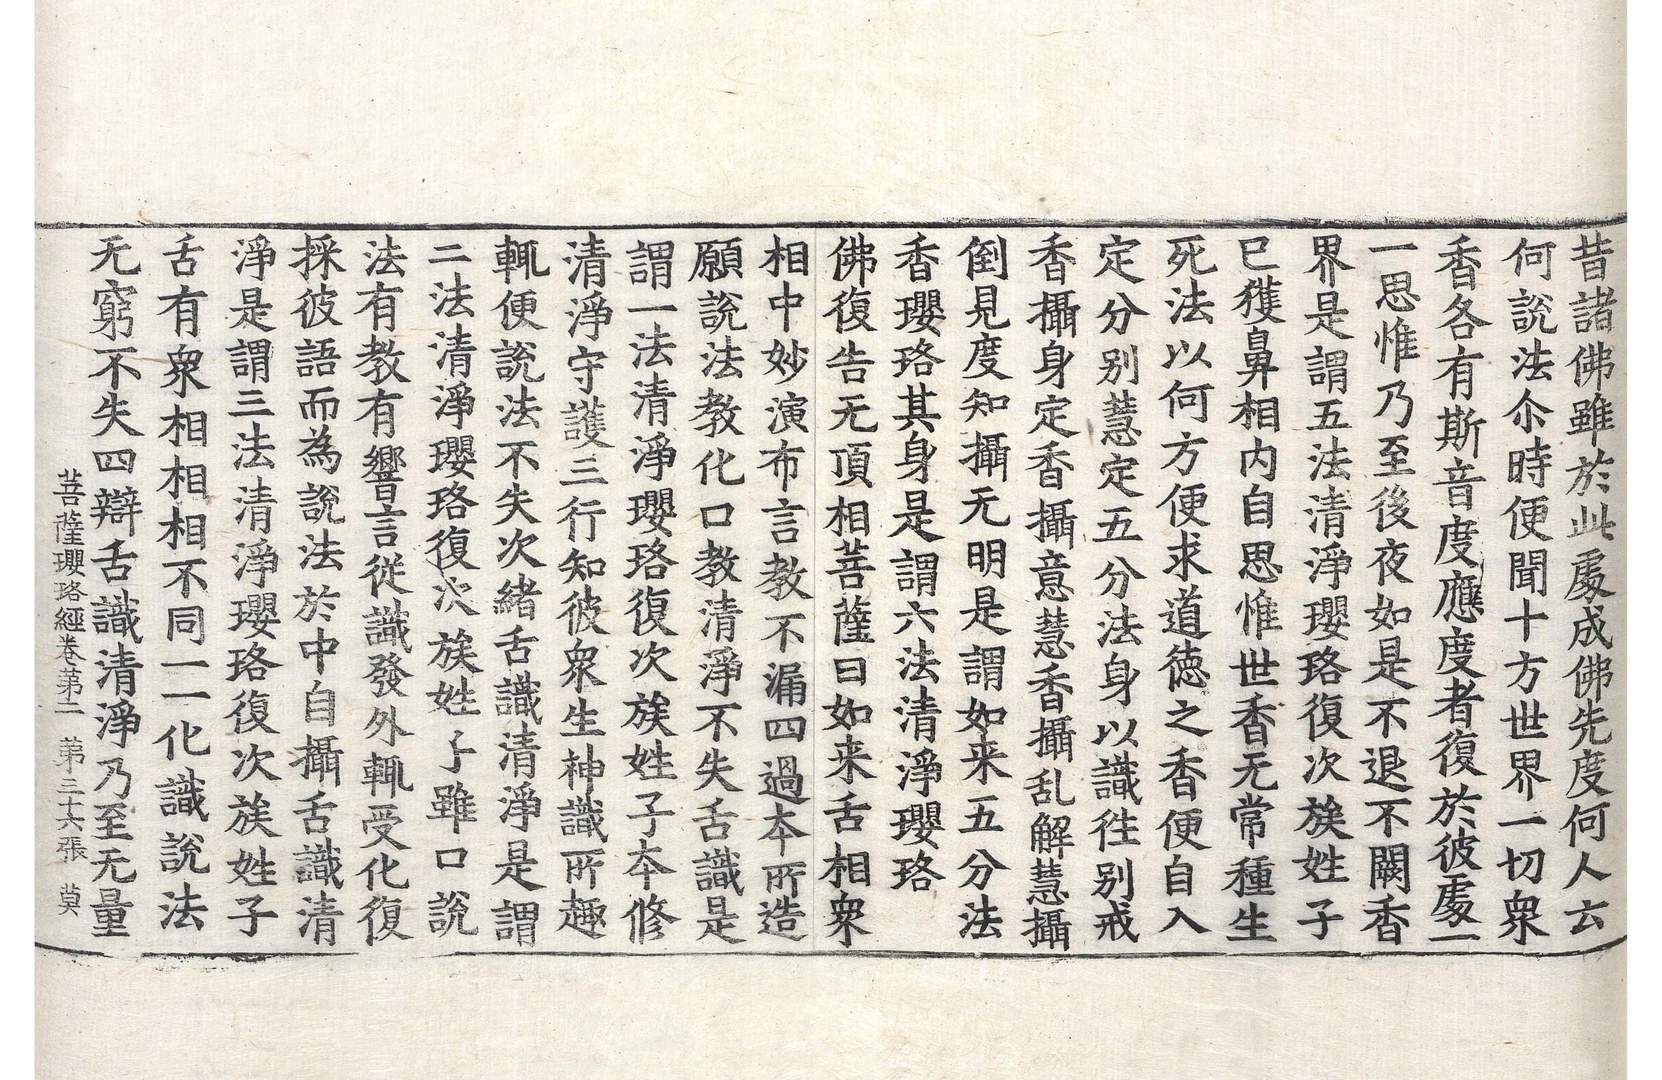 昔諸佛雖於此處成佛先度何人云
何說法尒時便聞十方世界一切衆
香各有斯音度應度者復於彼處一
一思惟乃至後夜如是不退不闕香
界是謂五法清淨瓔珞復次族姓子
已獲鼻相内自思惟世香无常種生
死法以何方便求道德之香便自入
定分别慧定五分法身以識徃别戒
香攝身定香攝意慧香攝乱解慧攝
倒見度知攝无明是謂如来五分法
香瓔珞其身是謂六法清淨瓔珞
佛復告无頂相菩薩曰如来舌相衆
相中妙演布言教不漏四過夲所造
願說法教化口教清淨不失舌識是
謂一法清淨瓔珞復次族姓子夲修
清淨守護三行知彼衆生神識所趣
輒便說法不失次緒舌識清淨是謂
二法清淨瓔珞復次族姓子雖口說
法有教有響言從識發外輒受化復
採彼語而為說法於中自攝舌識清
淨是謂三法清淨瓔珞復次族姓子
舌有衆相相相不同一一化識說法
无窮不失四辯舌識清淨乃至无量
菩薩瓔珞經卷第二 第三十六張 莫